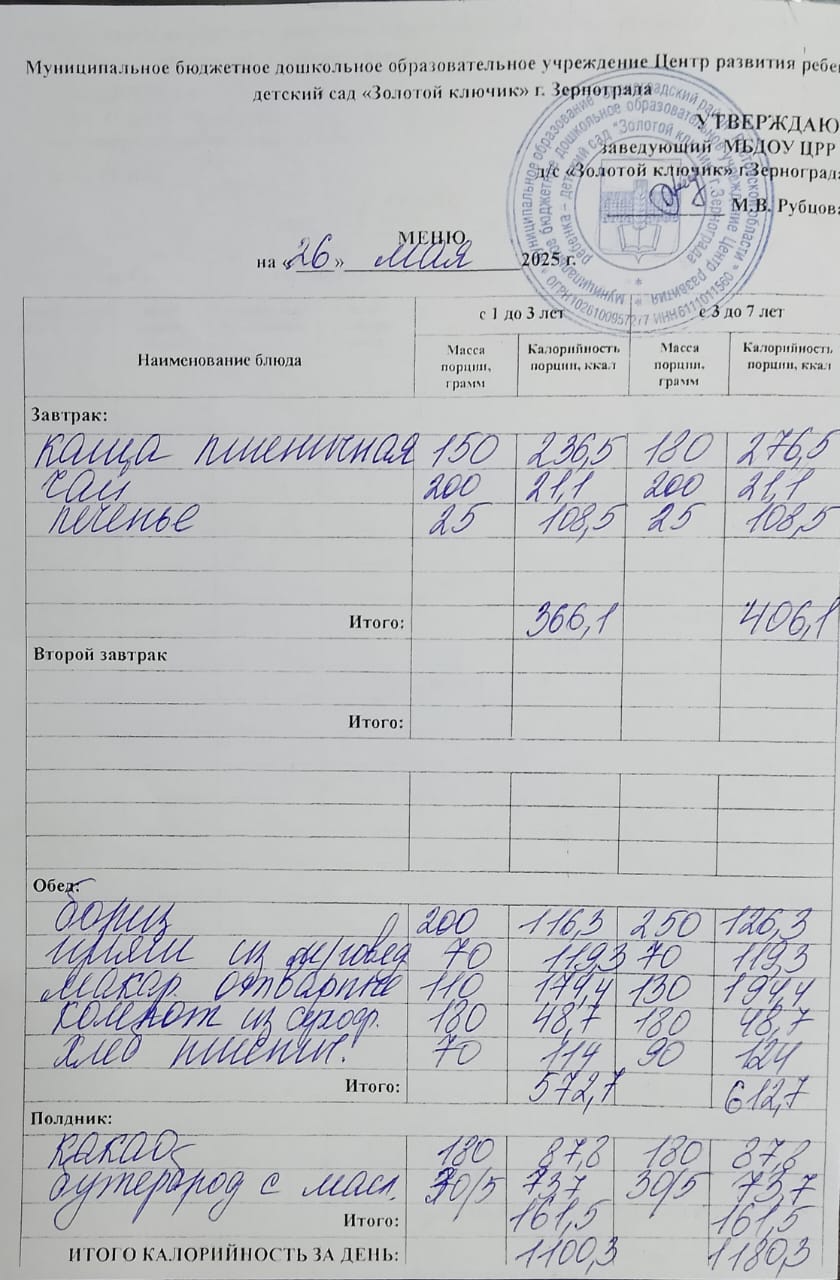 Муниципальное бюджетное дошкольное образовательное учреждение Центр развития ребе
детский сад «Золотой ключик» г. Зернограда
УТВЕРЖДАЮ
заведующий МБДОУ ЦРР
д/с «Золотой ключик» г.Зерноград
М.В. Рубцова
МЕНЮ
на «26» мая 2025 г.
Наименование блюда с 1 до 3 лет с 3 до 7 лет
Масса порции, грамм Калорийность порции, ккал Масса порции, грамм Калорийность порции, ккал
Завтрак:
каша пшеничная 150 236,5 180 276,5
чай 200 21,1 200 21,1
печенье 25 108,5 25 108,5
Итого: 366,1 406,1
Второй завтрак
Итого:
Обед:
борщ 200 116,3 250 126,3
из 70 119,3 70 119,3
макар. отварные 110 174,4 130 194,4
компот из сухоф. 180 48,7 180 48,7
хлеб пшенич. 70 114 90 124
Итого: 572,7 612,7
Полдник:
какао 180 87,8 180 87,8
бутерброд с масл. 30/5 73,7 30/5 73,7
Итого: 161,5 161,5
ИТОГО КАЛОРИЙНОСТЬ ЗА ДЕНЬ: 1100,3 1180,3